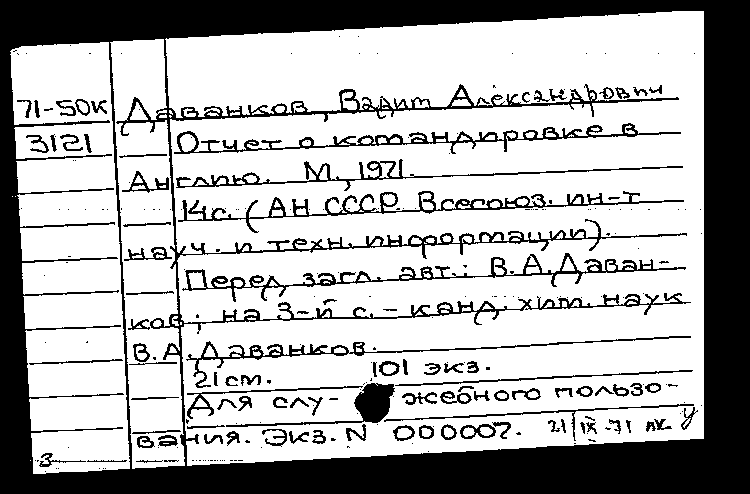 71-50К Даванков, Вадим Александрович
3121 Отчет о командировке в
Англию. М., 1971.
14с. (АН СССР. Всесоюз. ин-т
науч. и техн. информации).
Перед загл. авт.: В.А.Даван-
ков; на 3-й с. – канд. хим. наук
В.А.Даванков.
21 см. 101 экз.
Для слу- жебного пользо-
вания. Экз. N 000007. 21/IX-71
3